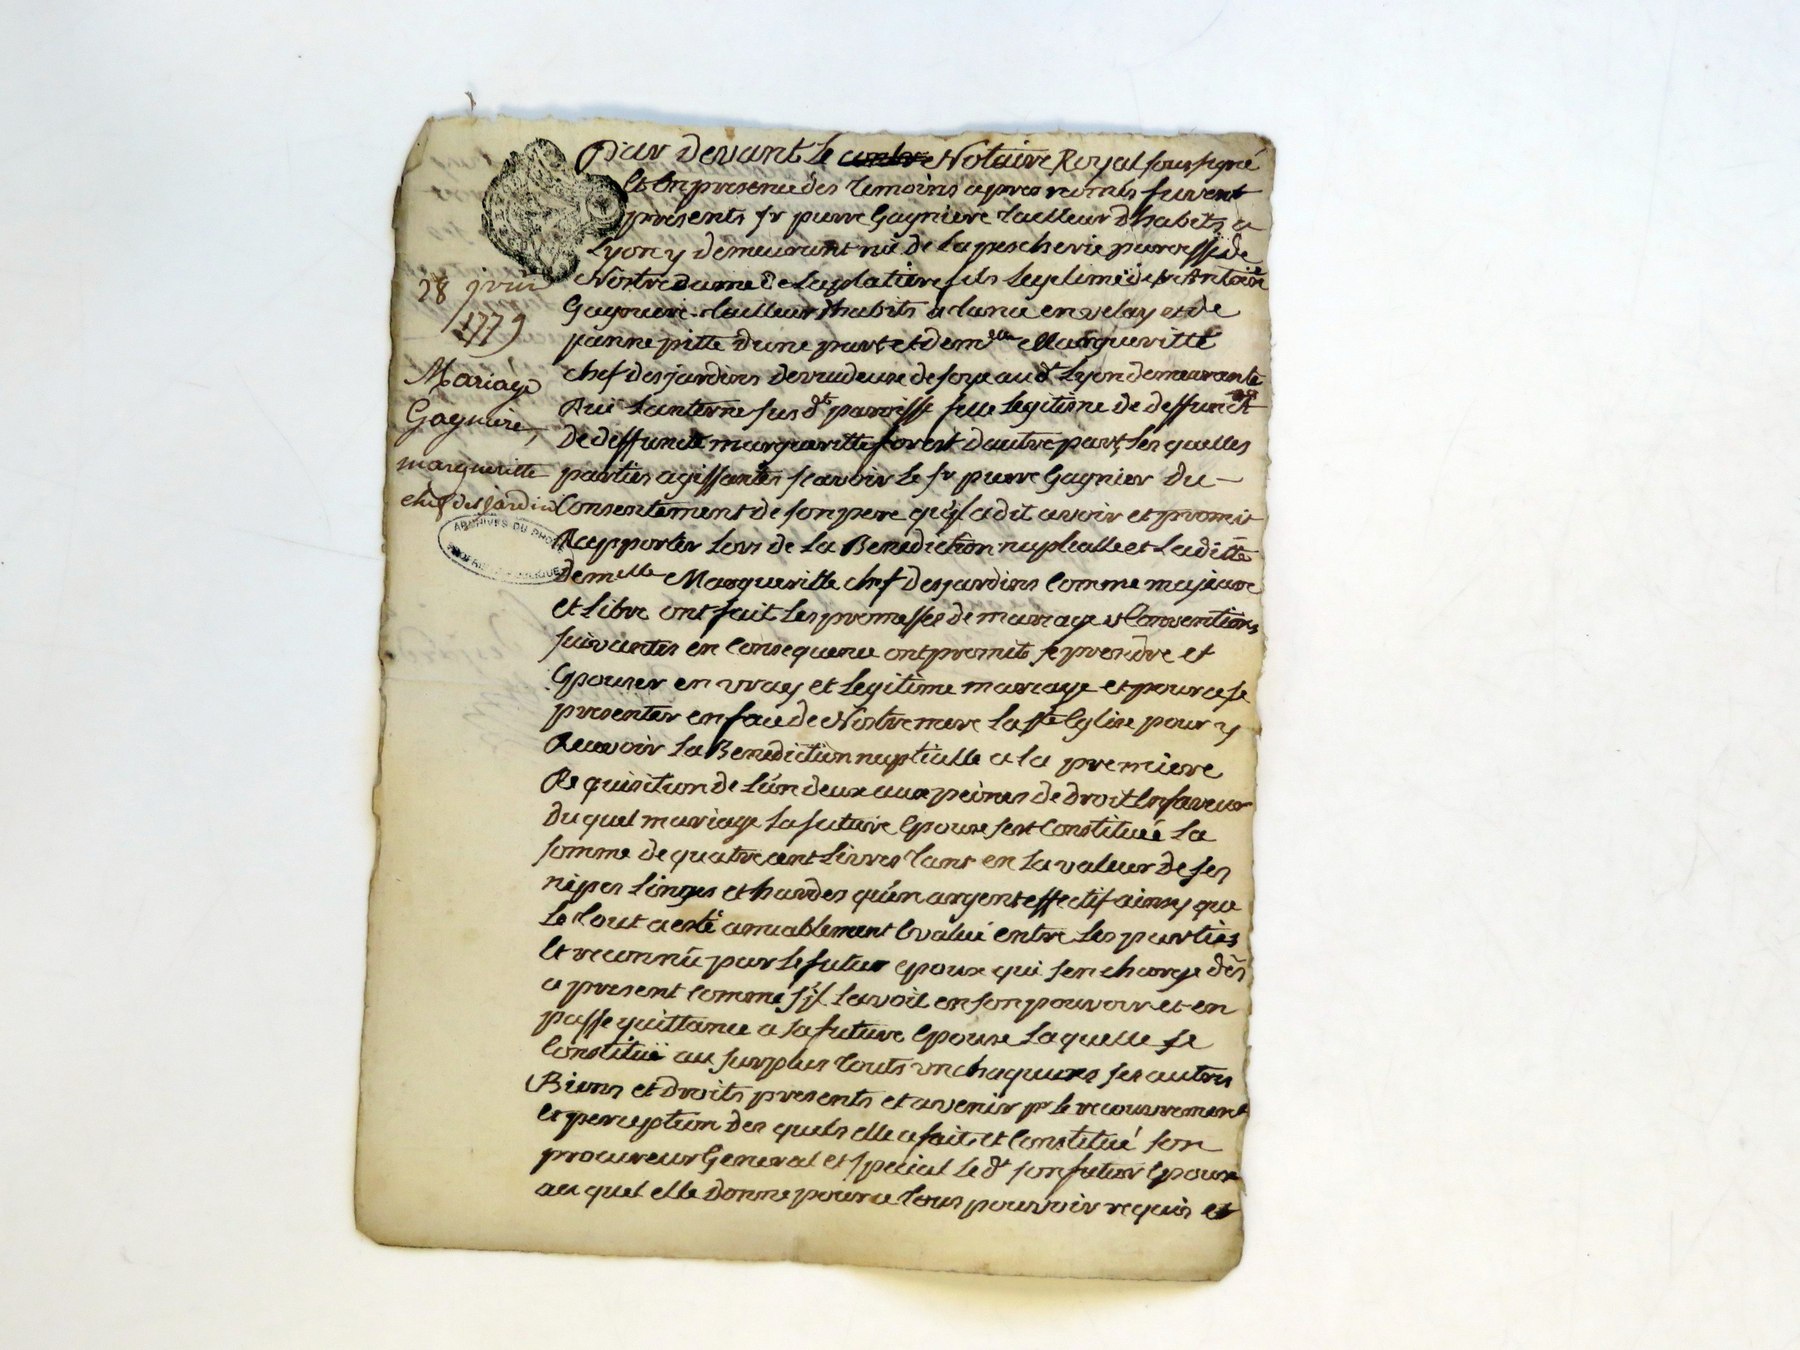 Par devant le Notaire Royal soussigné
Et En presence des temoins apres només furent
présents sr pierre Gagniere tailleur d'habits a
Lyon y demeurant rüe de la pescherie paroisse de
Nostre dame de laplatiere fils legitime de sr Antoine
Gagniere tailleur d'habits a en velay et de
janne pitte d'une part et demlle Margueritte
chef desjardins devideuse de soye aud Lyon demeurante
Rüe Lanterne susdt paroisse fille legitime de deffunct
De deffuncte margueritte forest d'autre part, lesquelles
parties agissantes scavoir le sr pierre Gagnier du
Consentement de son pere qu'il a dit avoir et promis
Rapporter lors de la Benediction nuptialle et laditte
Demelle Margueritte chef desjardins comme majeure
et libre ont fait les promesses de mariage et Conventions
suivantes en Consequence ont promis se prendre et
Epouser en vray et legitime mariage et pour ce se
presenter en face de Nostre mere la ste Eglise pour y
Recevoir la Benediction nuptialle a la premiere
Requisition de l'un deux aux peines de droit En faveur
Du quel mariage la future Epouse sest Constituée la
somme de quatre cent Livres tant en la valeur de ses
nipes linges et hardes qu'en argent effectif ainsy que
le tout a esté amiablement Evalué entre les parties
Et reconnü par le futur epoux qui sen charge dès
a present comme s'il lavoit en son pouvoir et en
passe quittance a sa future Epouse laquelle se
Constitüe au surplus touts un chaquuns ses autres
Biens et droits presents et avenir pr le recouvrement
Et perception des quels elle a fait et Constitué son
procureur General et special led son futur Epoux
au quel elle donne pour ce tous pouvoir requis et
28 1779
Mariage
Gagniere,
margueritte
chef desjardin
ARCHIVES DU RHÔNE